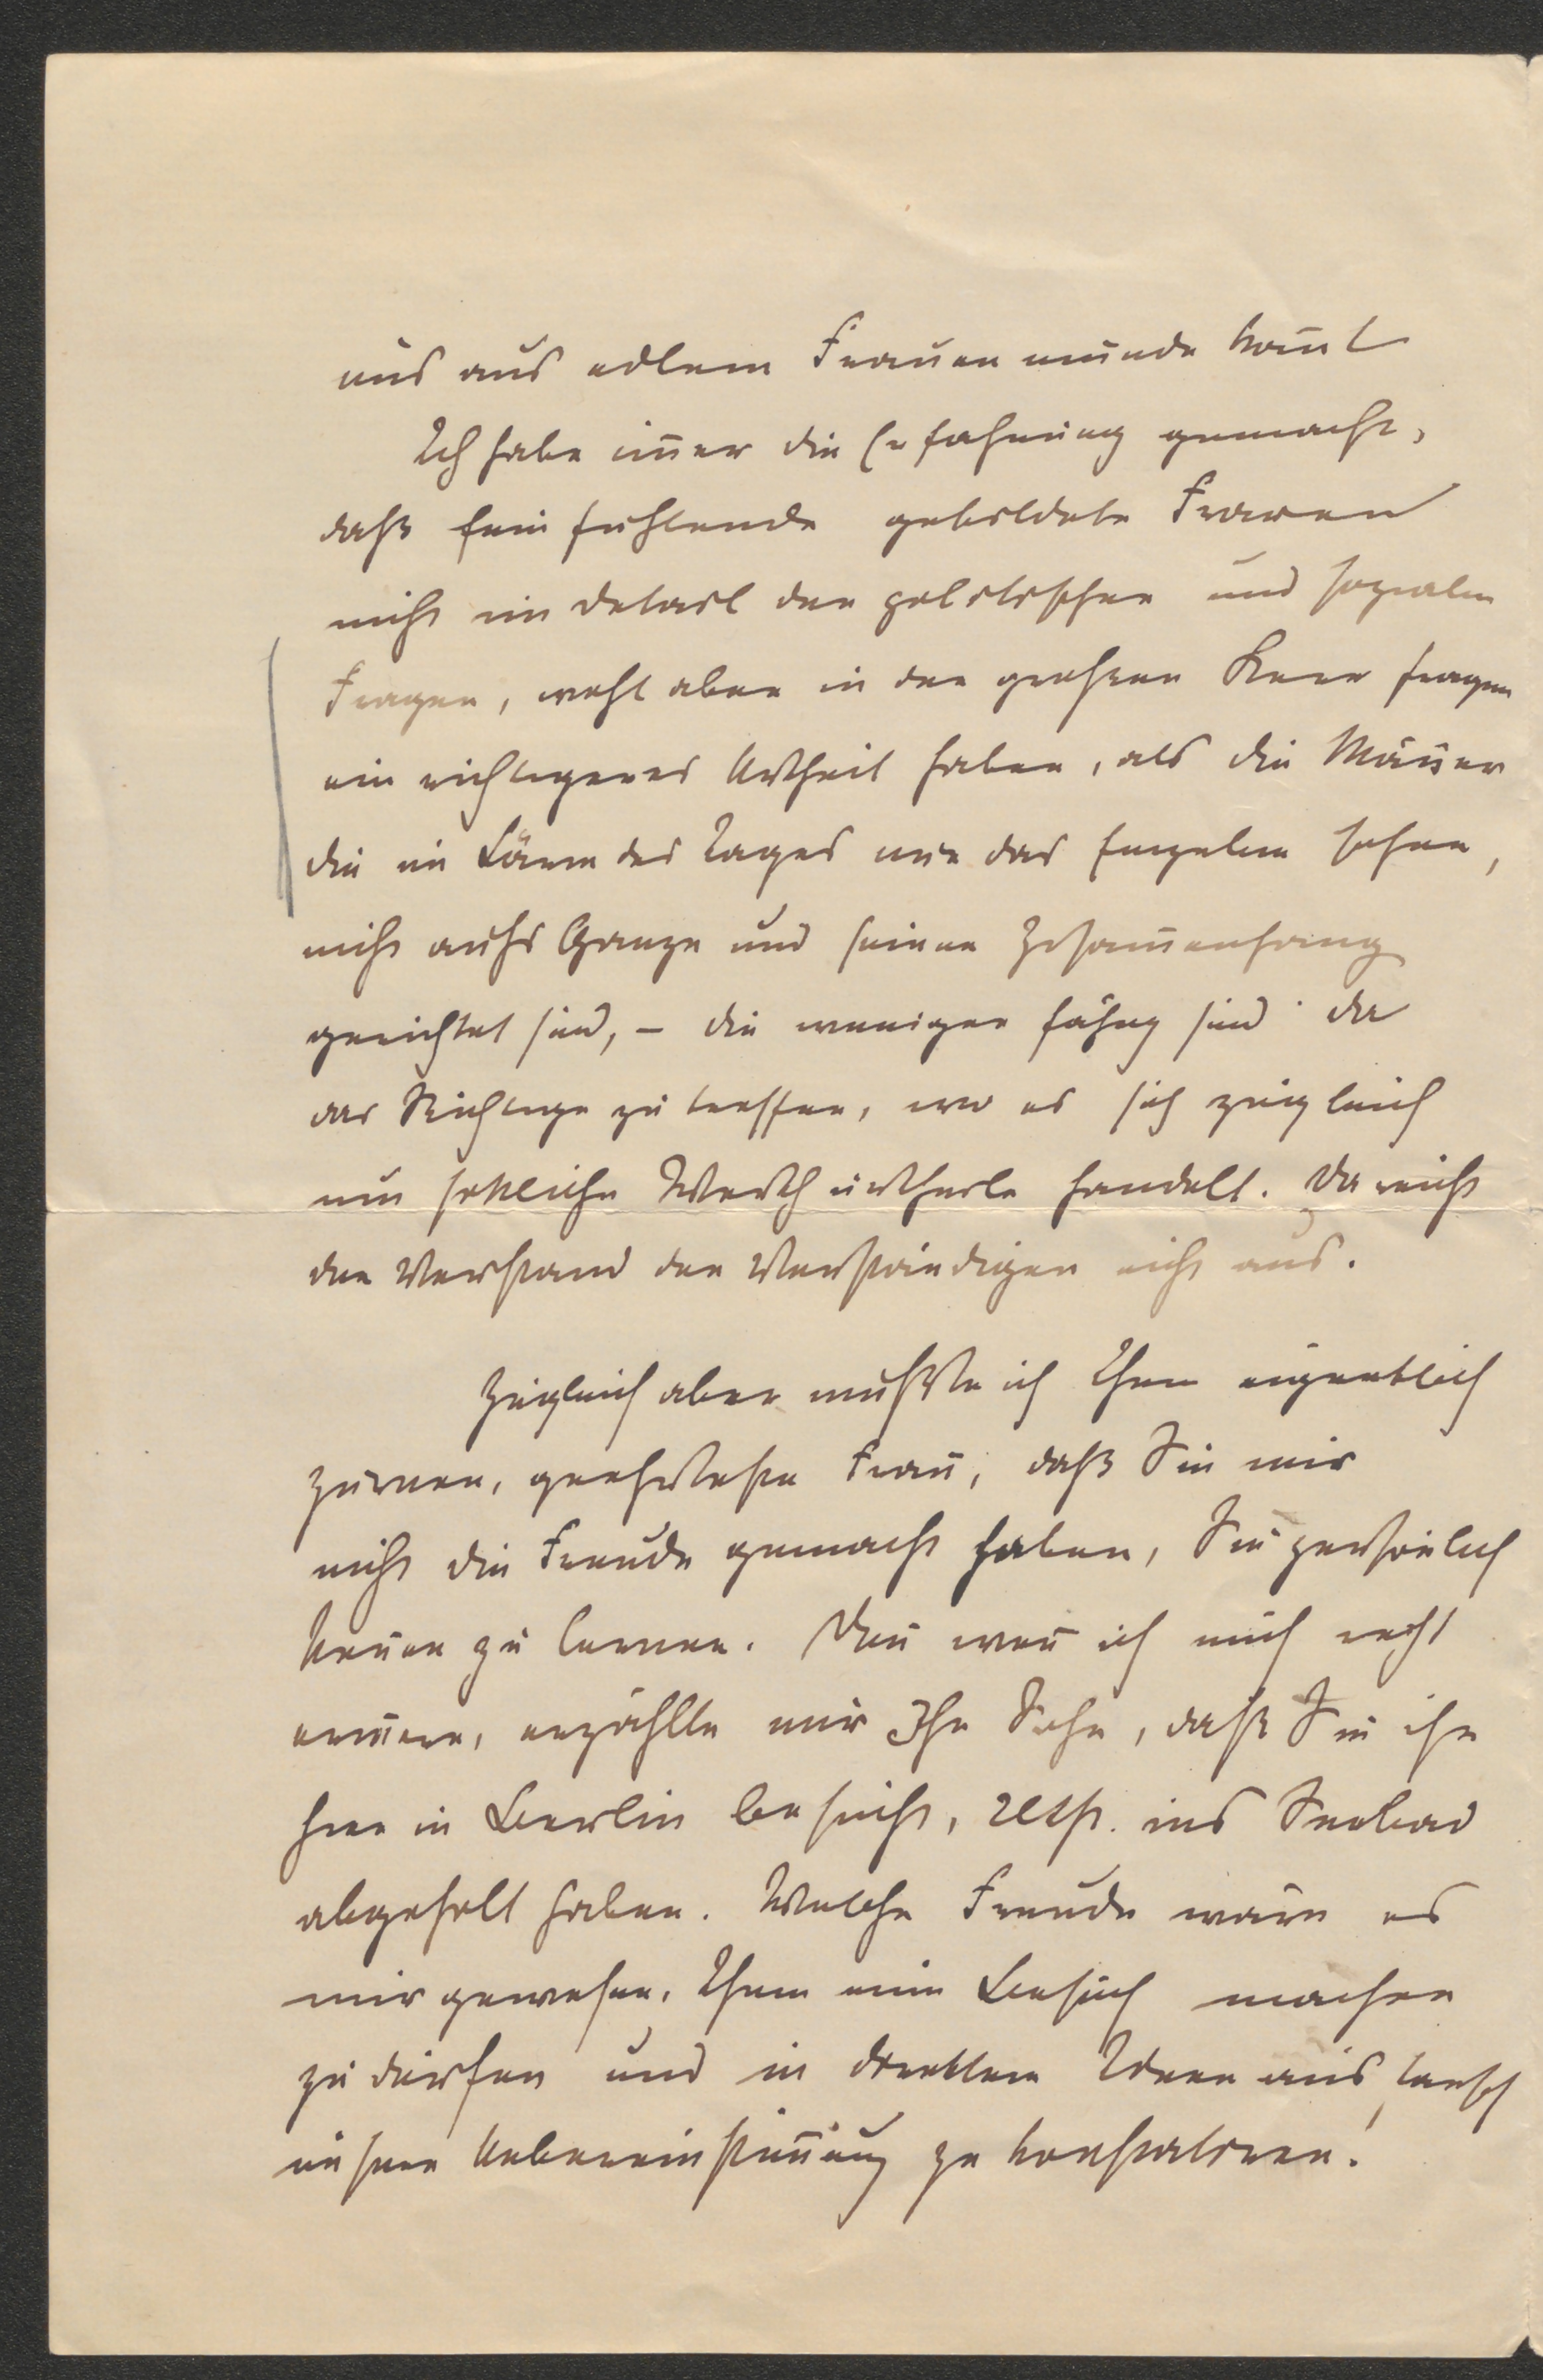 uns aus edlem Frauenmunde kom̄t
Ich habe im̄er die Erfahrung gemacht,
daß feinfühlende gebildete Frauen
nicht im Detail der politischen und sozialen
Fragen, wohl aber in den großen Kernfragen
ein richtigeres Urtheil haben, als die Män̄er
die im Lärm des Tages nur das Einzelne sehen,
nicht aufs Ganze und seinen Zusam̄enhang
gerichtet sind, – die weniger fähig sind da
das Richtige zu treffen, wo es sich zugleich
um sittliche Werthurtheile handelt. Da reicht
der Verstand der Verständigen nicht aus.
Zugleich aber mußte ich Ihnen eigentlich
zürnen, geehrteste Frau, daß Sie mir
nicht die Freude gemacht haben, Sie persönlich
ken̄en zu lernen. Den̄ wen̄ ich mich recht
erin̄ere, erzählte mir Ihr Sohn, daß Sie ihn
hier in Berlin besucht, resp. ins Seebad
abgeholt haben. Welche Freude wäre es
mir gewesen, Ihnen einen Besuch machen
zu dürfen und in direktem Ideenaustausch
unsere Uebereinstim̄ung zu konstatieren!